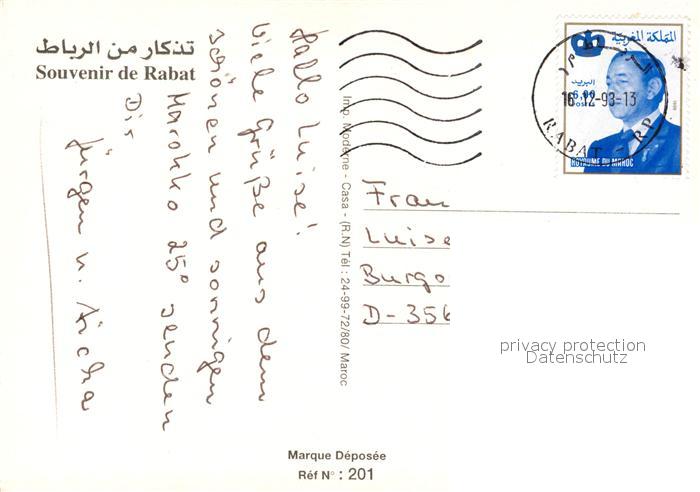 تذكار من الرباط
Souvenir de Rabat
Hallo Luise!
Viele Grüße aus dem
schönen und sonnigen
Marokko 25° senden
Dir
Jürgen u. Aicha
Imp. Moderne - Casa - (R.N) Tél : 24-99-72/80/ Maroc
المملكة المغربية
البريد
6,00
POSTES
ROYAUME DU MAROC
16-12-93-13
RABAT - RP
Frau
Luise
Burgo
D-356
privacy protection
Datenschutz
Marque Déposée
Réf N° : 201